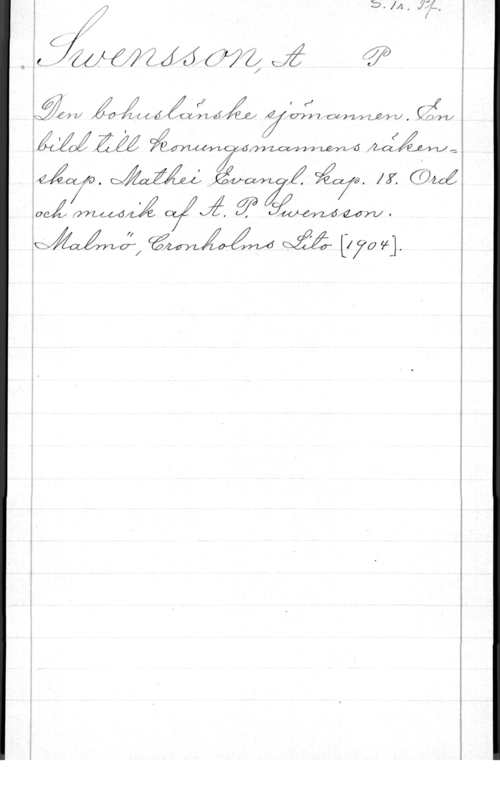 S. 1 n. Pf.
Swensson, A P
Den bohuslänske sjömannen. En
bild till konungsmannens räken-
skap. Mathei Evangl. kap. 18. Ord
och musik af A. P. Swensson.
Malmö, Cronholms Lito [1904].